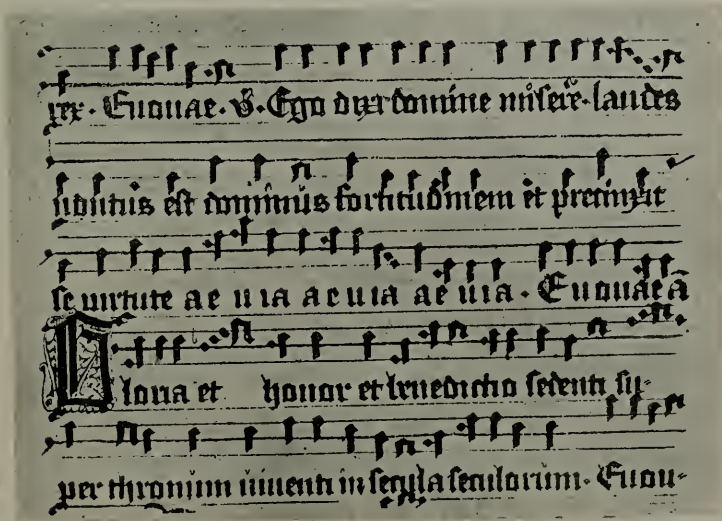 rex · Euouae · V̄ · Ego dixi domine misere · laudes
Indutus est dominus fortitudinem et precinxit
se uirtute ae uia aeuia ae uia · Euouae ā
Gloria et honor et benedictio sedenti su-
per thronum uiuenti in secula seculorum · Euou-